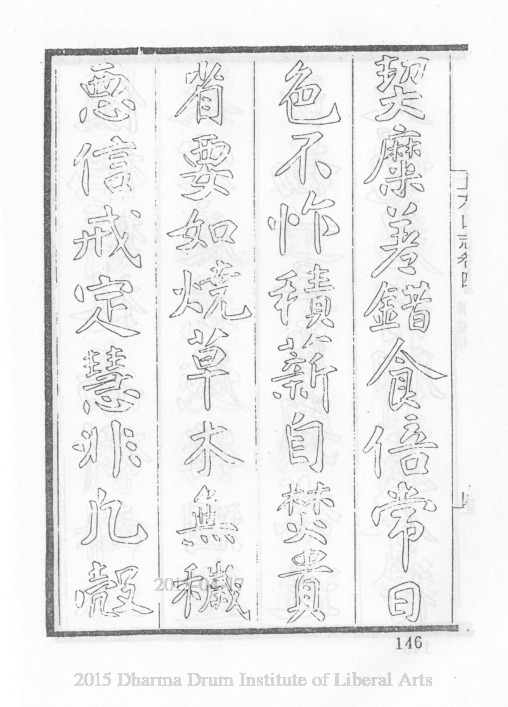 契糜著錯食倍常日
色不怍積薪自焚貴
省要如燒草木無穢
惡信戒定慧非凡殼
146
2015 Dharma Drum Institute of Liberal Arts